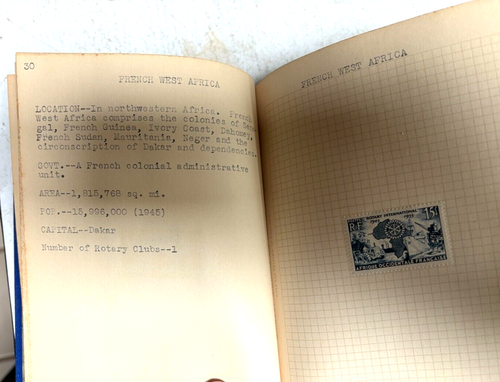 30
FRENCH WEST AFRICA
LOCATION--In northwestern Africa. French
West Africa comprises the colonies of Sene-
gal, French Guinea, Ivory Coast, Dahomey,
French Sudan, Mauritania, Neger and the
circonscription of Dakar and dependencies.
GOVT.--A French colonial administrative
unit.
AREA--1,815,768 sq. mi.
POP.--15,996,000 (1945)
CAPITAL--Dakar
Number of Rotary Clubs--1
FRENCH WEST AFRICA
ROTARY INTERNATIONAL
1905 1955
15F
RF
AFRIQUE OCCIDENTALE FRANÇAISE